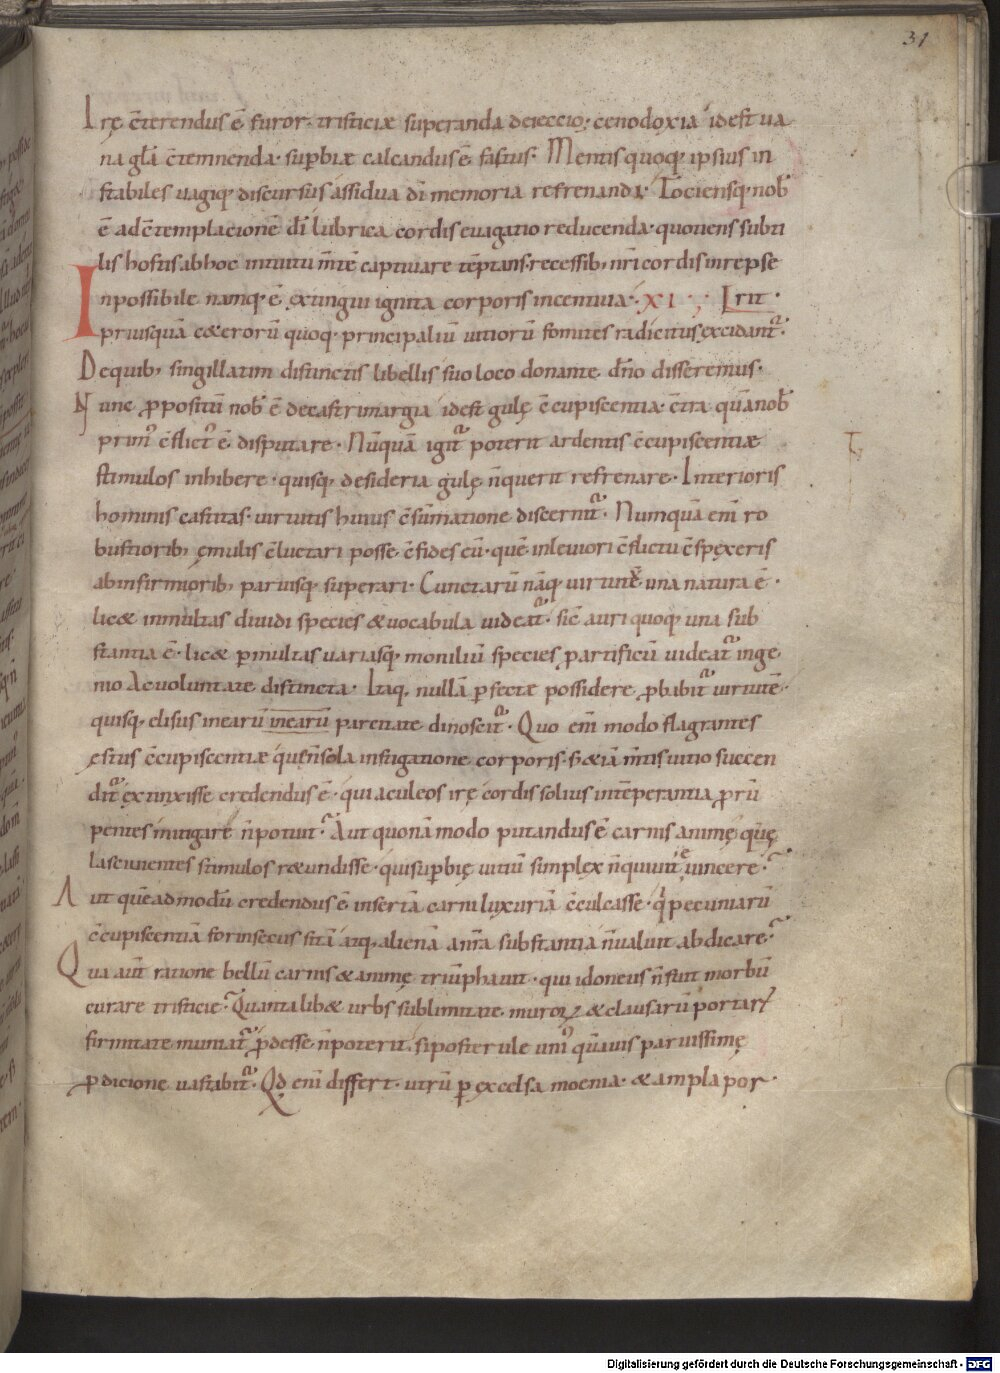 31
Irę c̄terendus ē furor · tristiciæ superanda deieccio · cenodoxia idest ua
na gl̄a c̄temnenda · sup̄biæ calcandus ē fastus · Mentis quoq; ipsius in
stabiles uagiq; discursus assidua dī memoria refrenandi · Tociensq; nob̄
ē ad c̄templacionē dī lubrica cordis euagatio reducenda · quotiens subti
lis hostis ab hoc intuitu m̄te captiuare tēptans · recessib; nr̄i cordis inrepse
Inpossibile namq; ē extingui ignita corporis incentiua · XI · rit ·
priusquā cæterorū quoq; principaliū uitiorū fomites radicitus excidant᷑ ·
De quib; singillatim distinctis libellis suo loco donante dn̄o disseremus ·
Nunc p̄positū nob̄ ē de castrimargia idest gulę c̄cupiscentia · c̄tra quā nob̄
primꝰ c̄flictꝰ ē disputare · Nūquā igit᷑ poterit ardentis c̄cupiscentiæ
stimulos inhibere · quisq; desideria gulę n̄ querit refrenare · Interioris
hominis castitas · uirtutis huius c̄sūmatione discernit᷑ · Numquā em̄ ro
bustiorib; ęmulis c̄luctari posse c̄fides eū · quē in leuiori c̄flictu c̄spexeris
ab infirmiorib; paruisq; superari · Cunctarū nāq; uirtutū una natura ē ·
lic& in multas diuidi species & uocabula uideat᷑ · sic̄ auri quoq; una sub
stantia ē · lic& p̄ multas uariasq; moniliū species p̄ artificū uideat᷑ inge
nio ac uoluntate distincta · Itaq; nullā p̄fecte possidere p̄babit᷑ uirtutē ·
quisq; elisus in earū in earū parte nate dinoscit᷑ · Quo em̄ modo flagrantes
estus c̄cupiscentiæ qui n̄ sola instigatione corporis · s & iā m̄tis uitio succen
dit᷑ extinxisse credendus ē · qui aculeos irę cordis solius intēperantia p̄rū
pentes mitigare n̄ potuit · Aut quonā modo putandus ē carnis animę q̄;
lasciuientes stimulos r&undisse · qui sup̄bię uitiū simplex n̄ quiuit uincere ·
Aut quēadmodū credendus ē insertā carni luxuriā c̄culcasse · qi pecuniarū
c̄cupiscentiā forinsecus sitā atq; alienā a nr̄a substantia n̄ ualuit abdicare ·
Qua aut̄ ratione bellū carnis & animę triūphauit · qui idoneus n̄ fuit morbū
curare tristicię · Quanta lib& urbs sublimitate muroꝝ & clausarū portarꝝ
firmitate muniat᷑ · p̄desse n̄ poterit · si posterule uniꝰ quāuis paruissimę
p̄dicione uastabit᷑ · Qd̄ eni differt · utrū p̄ excelsa moenia · & ampla por ·
Digitalisierung gefördert durch die Deutsche Forschungsgemeinschaft - DFG